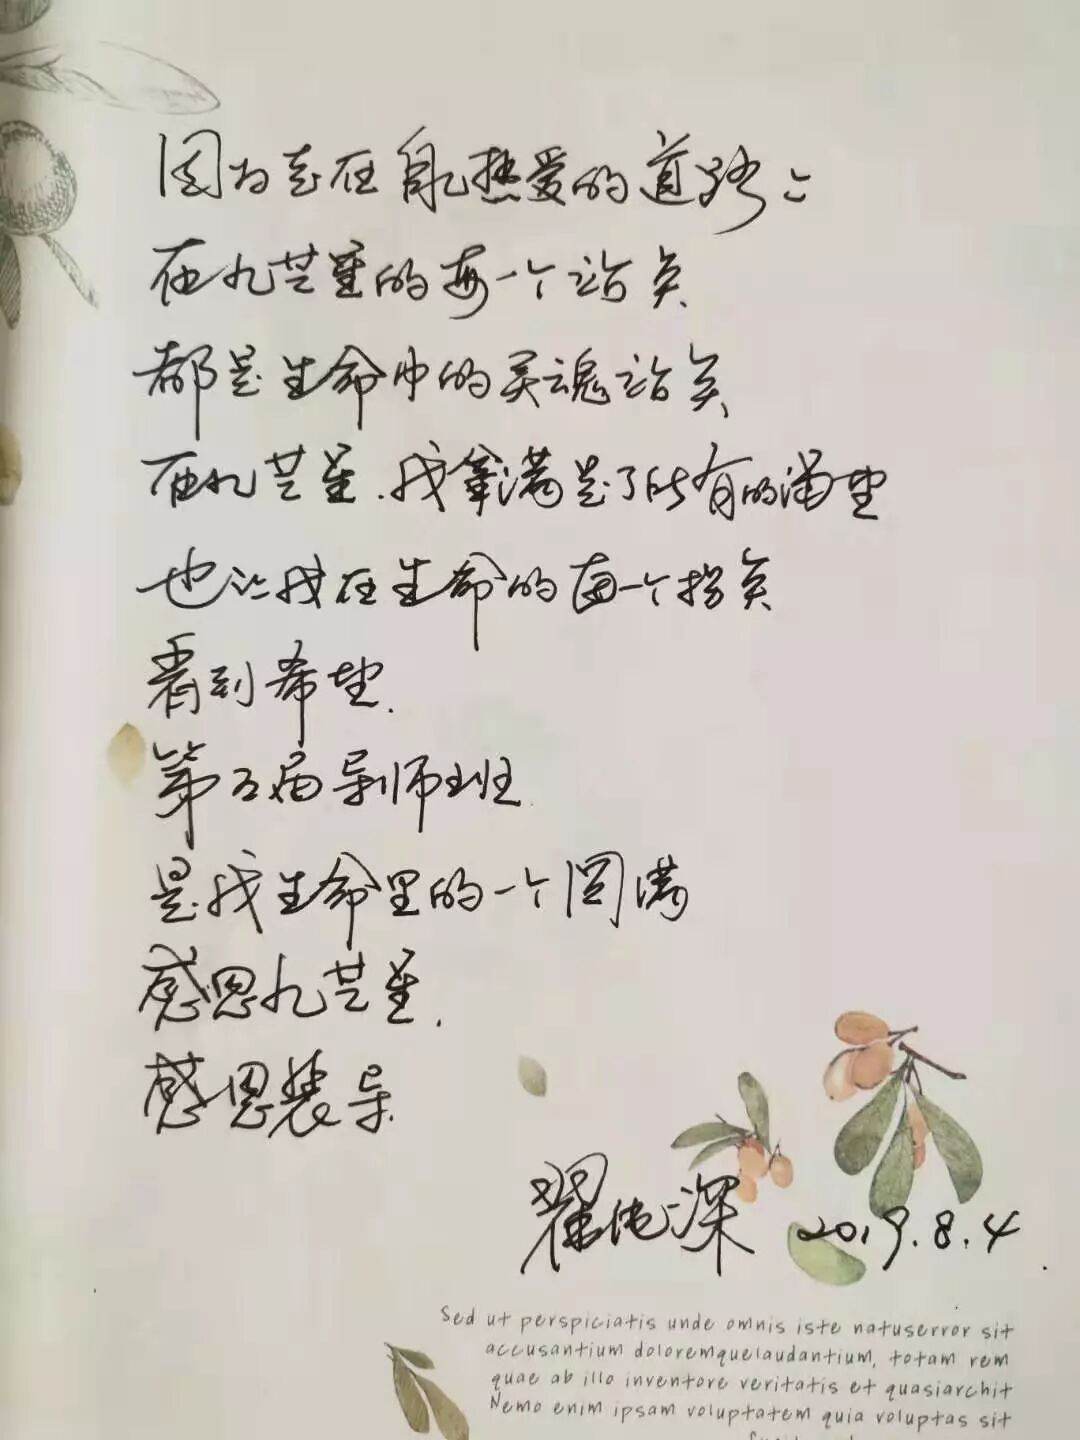 因为走在自己热爱的道路上
在九芒星的每一个站点
都是生命中的灵魂站点
在九芒星.我拿满足了所有的渴望
也让我在生命的每一个拐点
看到希望.
第五届导师班
是我生命里的一个圆满
感恩九芒星.
感恩裴导
翟传深 2019.8.4
Sed ut perspiciatis unde omnis iste natuserror sit
accusantium doloremquelaudantium, totam rem
quae ab illo inventore veritatis et quasiarchit
Nemo enim ipsam voluptatem quia voluptas sit